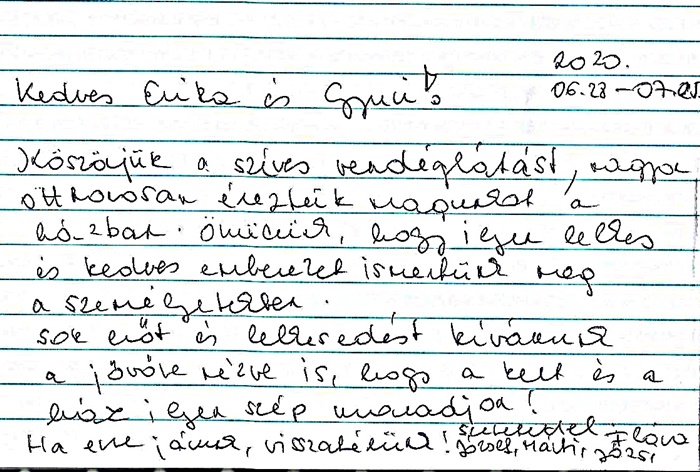 2020.
Kedves Erika és Gyuri!
06.28-07.
Köszönjük a szíves vendéglátást, nagyon
otthonosan éreztük magunkat a
házban. Örülünk, hogy ilyen lelkes
és kedves embereket ismertünk meg
a személyetekben.
sok erőt és lelkesedést kívánunk
a jövőre nézve is, hogy a kert és a
ház ilyen szép maradjon!
Ha erre járunk, visszatérünk! szeretettel Flóra
József, Márti, Józsi,